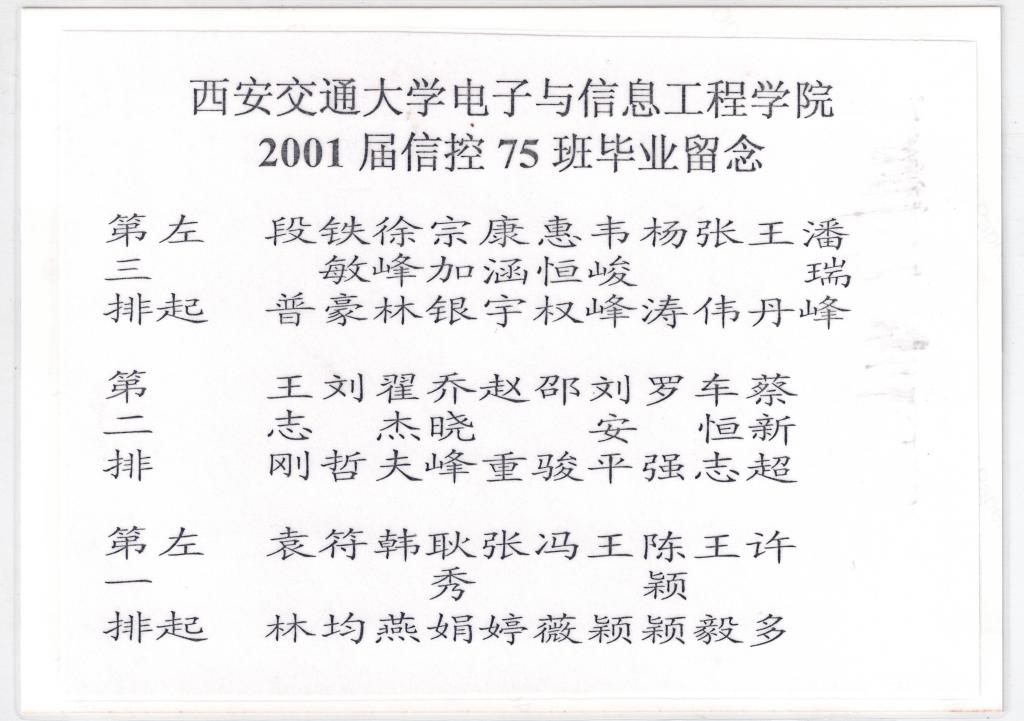 西安交通大学电子与信息工程学院
2001 届信控 75 班毕业留念
第 左 段 铁 徐 宗 康 惠 韦 杨 张 王 潘
三 敏 峰 加 涵 恒 峻 瑞
排 起 普 豪 林 银 宇 权 峰 涛 伟 丹 峰
第 王 刘 翟 乔 赵 邵 刘 罗 车 蔡
二 志 杰 晓 安 恒 新
排 刚 哲 夫 峰 重 骏 平 强 志 超
第 左 袁 符 韩 耿 张 冯 王 陈 王 许
一 秀 颖
排 起 林 均 燕 娟 婷 薇 颖 颖 毅 多